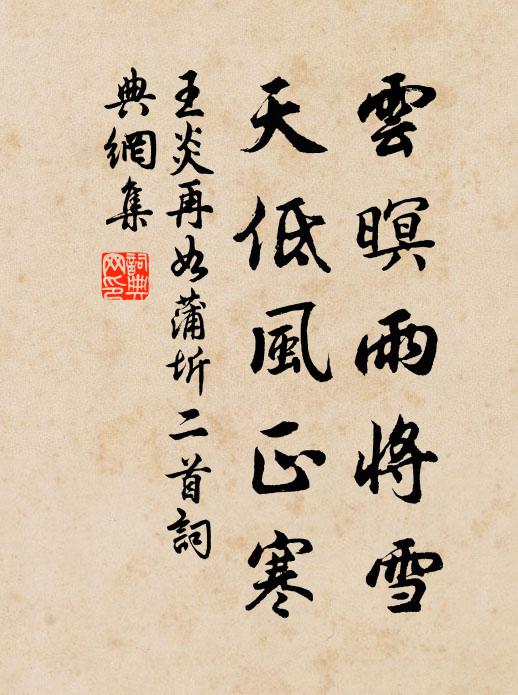 雲暝雨將雪
天低風正寒
王炎再如蒲圻二首詞
典網集
詞典網印